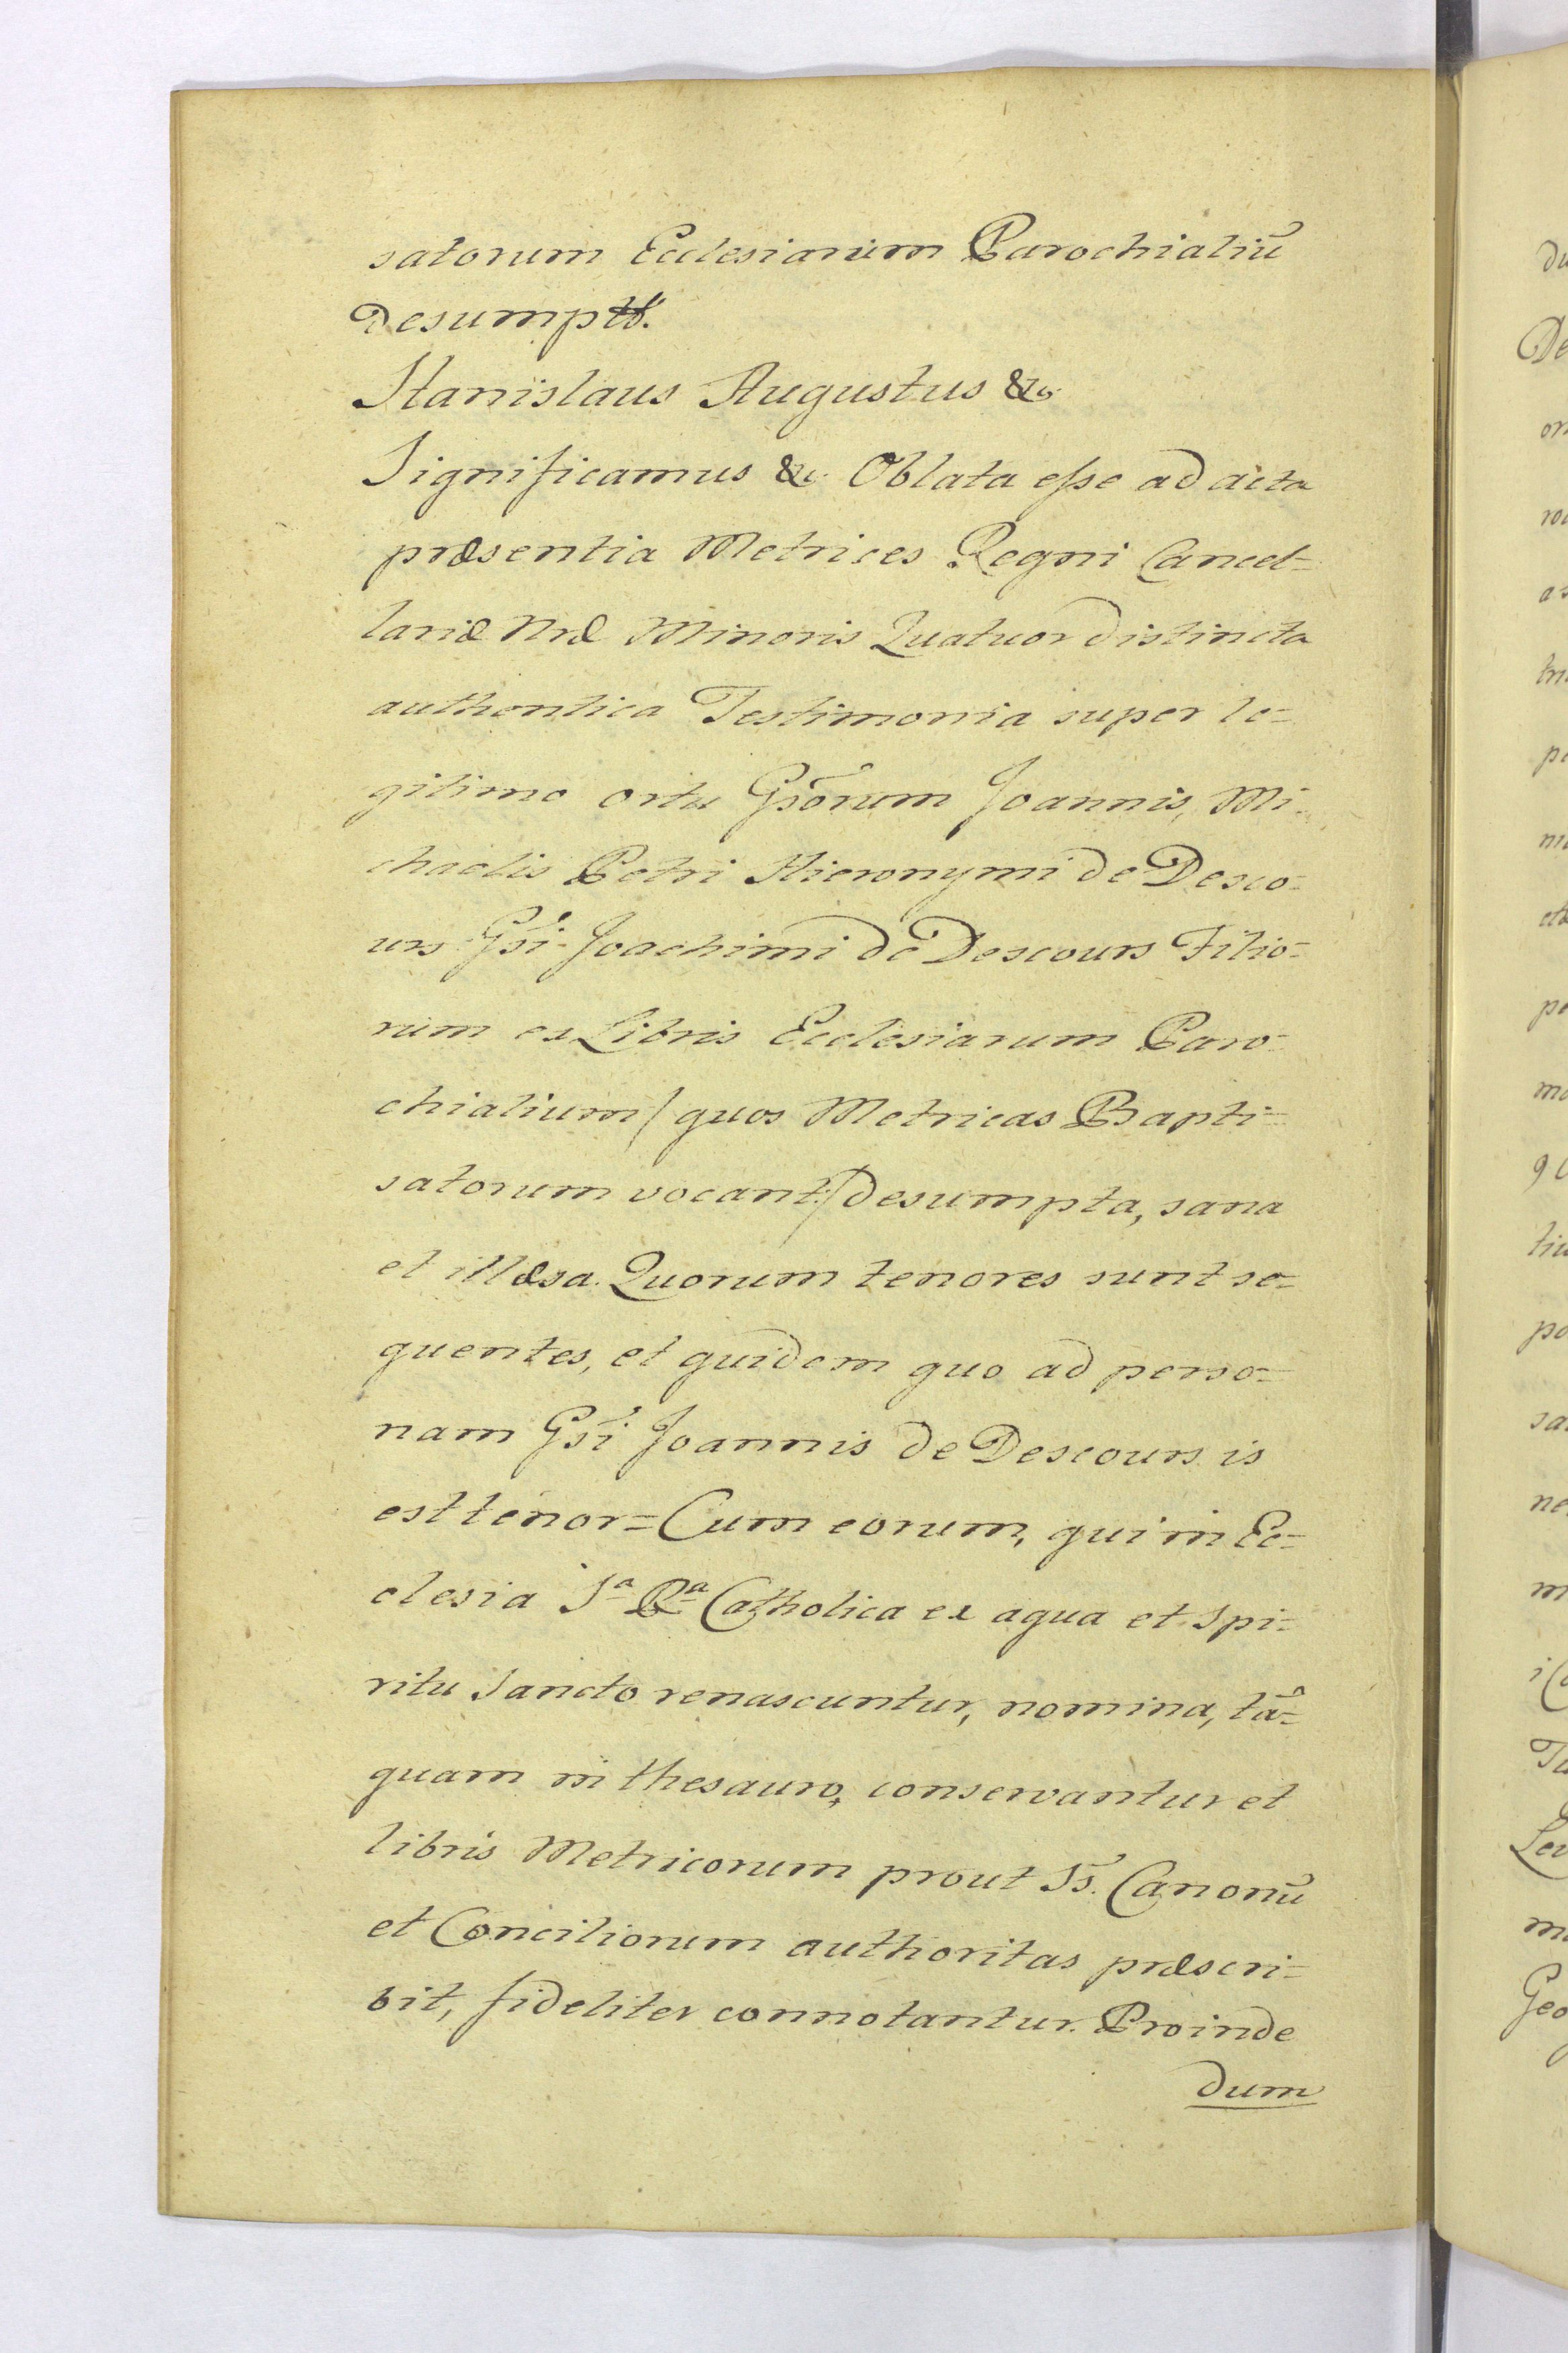 satorum Ecclesiarum Parochialiũ
Desumpta.
Stanislaus Augustus &c
Significamus &c Oblata esse ad acta
præsentia Metrices Regni Cancel=
lariæ Nræ Minoris Quatuor distincta
authentica Testimonia super le=
gitimo ortu Gsõrum Joannis, Mi=
chaelis Petri Hieronymi de Desco=
urs Gsi Joachimi de Descours Filio=
rum ex Libris Ecclesiarum Paro=
chialium / quos Metricas Bapti=
satorum vocant / desumpta, sana
et illæsa. Quorum tenores sunt se=
quentes, et quidem quo ad perso=
nam Gsi Joannis de Descours is
est tenor = Cum eorum, qui in Ec=
clesia Sa Ra Catholica ex aqua et Spi=
ritu Sancto renascuntur, nomina, tã=
quam in thesauro, conservantur et
libris Metricorum prout Ss. Canonũ
et Conciliorum authoritas præscri=
bit, fideliter connotantur. Proinde
dum
du
De
on